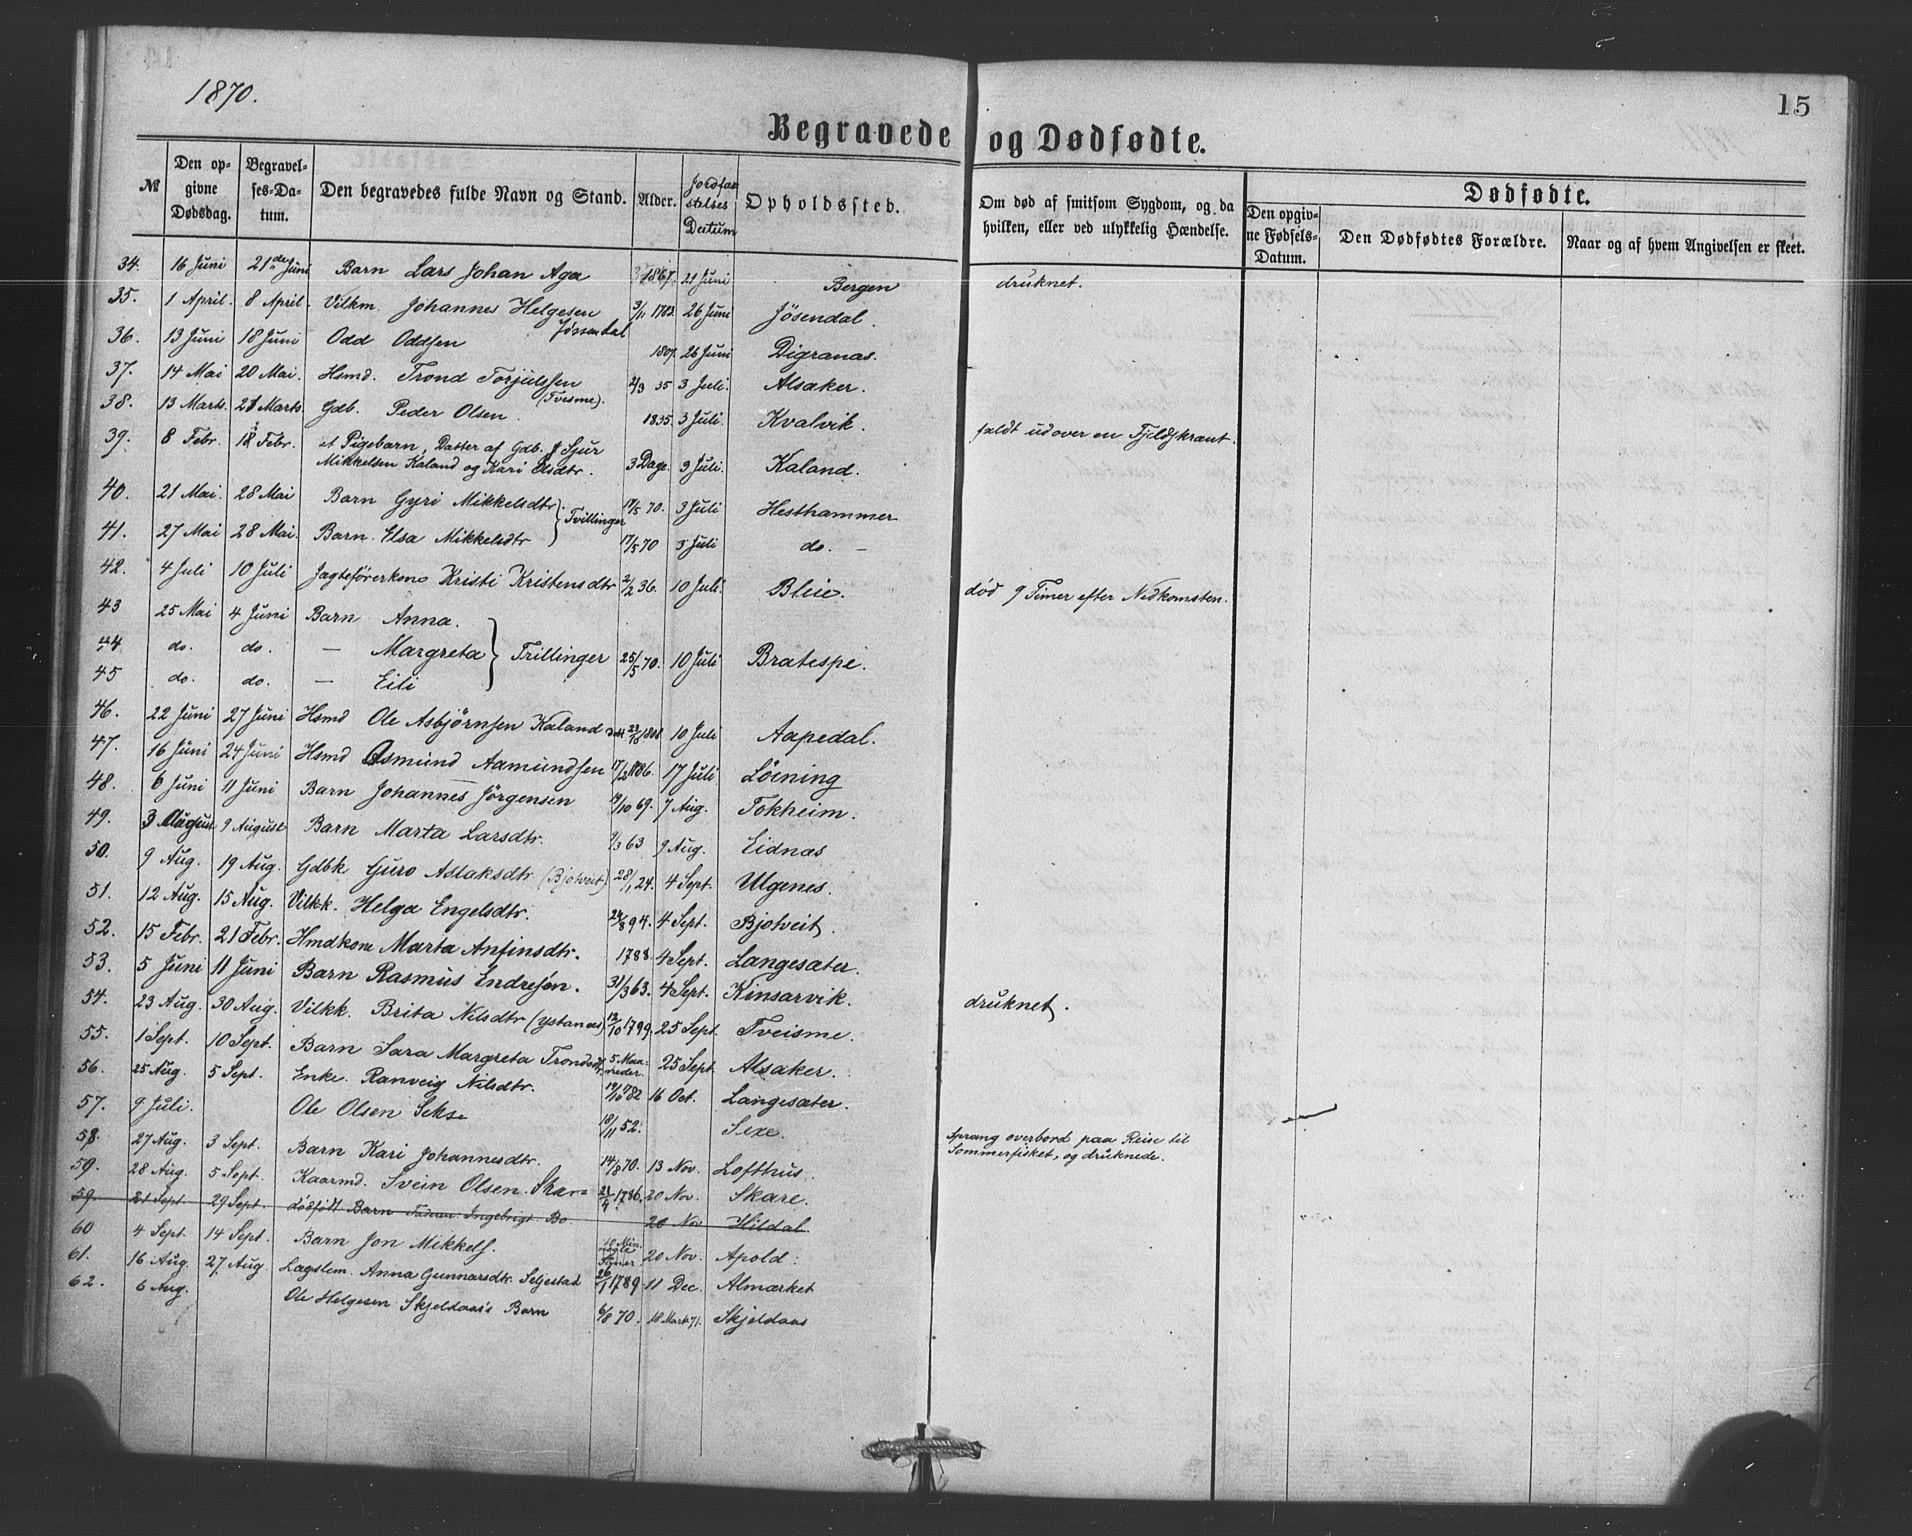 1870.
15
Begravede og Dødfødte.
№ Den opgivne Dødsdag. Begravelses-Datum. Den begravedes fulde Navn og Stand. Alder. Jordfæstelses Datum Opholdssted. Om død af smitsom Sygdom, og da hvilken, eller ved ulykkelig Hændelse. Dødfødte. Den opgivne Fødsels-Datum. Den Dødfødtes Forældre. Naar og af hvem Angivelsen er skeet.
34. 16 Juni 21de Juni Barn Lars Johan Aga 1867. 21 Juni Bergen druknet.
35. 1 April. 8 April. Vilkm. Johannes Helgesen Jøssendal 3/11 1783. 26 Juni Jösendal.
36. 13 Juni 18 Juni Odd Oddsen 1807. 26 Juni Digranas.
37. 14 Mai 20 Mai. Hsmd. Trond Torjulssen (Tvesme). 2/3 35 3 Juli. Alsaker.
38. 13 Marts. 21 Marts. Gdb. Peder Olsen. 1835. 3 Juli. Kvalvik. faldt udover en Fjeldskrænt.
39. 8 Febr. 18 Febr. et Pigebarn, Datter af Gdb. Sjur
Mikkelsen Kaland og Kari Olsdtr. 3 Dage. 3 Juli. Kaland.
40. 21 Mai. 28 Mai Barn Gyri Mikkelsdtr } Tvillinger 17/5 70. 3 Juli Hesthammer
41. 27 Mai 28 Mai. Barn. Elsa Mikkelsdtr 17/5 70 3 Juli do. —
42. 4 Juli 10 Juli Jægteførerkone Kristi Kristensdtr 2/2 36. 10 Juli. Bleie. død 9 Timer efter Nedkomsten.
43 25 Mai 4 Juni Barn Anna.
44. do. do. — Margreta } Trillinger 25/5 70. 10 Juli Bratespe.
45 do. do. — Eili
46. 22 Juni 27 Juni Hsmd Ole Asbjørnsen Kaland 1808 10 Juli Aapedal.
47. 16 Juni 24 Juni Hsmd Osmund Aamundsen 17/2 36. 17 Juli Löining
48. 6 Juni 11 Juni Barn Johannes Jörgensen 19/10 69. 7 Aug. Tokheim.
49. 3 August 9 August Barn Marta Larsdtr. 9/3 63 9 Aug. Eidnas
50. 9 Aug. 19 Aug. Gdbk Guro Aslaksdtr (Bjotveit) 28/1 24. 4 Sept. Ulgenes.
51. 12 Aug. 15 Aug. Vilkk. Helga Engelsdtr. 24/8 94. 4 Sept. Bjotveit.
52. 15 Febr. 21 Febr. Hmdkone Marta Anfinsdtr. 1788. 4 Sept. Langesæter.
53. 5 Juni 11 Juni Barn Rasmus Endresøn. 31/3 63. 4 Sept. Kinsarvik. druknet.
54. 23 Aug. 30 Aug. Vilkk. Brita Nilsdtr (Ystanes) 12/10 1799. 25 Sept. Tveisme.
55. 1 Sept. 10 Sept. Barn Sara Margreta Trondsdtr. 5 Maaneder. 25 Sept Alsaker.
56. 25 Aug. 5 Sept. Enke. Ranveig Nilsdtr. 19/10 782 16 Oct. Langesæter.
57. 9 Juli. Ole Olsen Sekse 18/11 52. Sexe. Sprang overbord paa Reise til
Sommerfisket, og druknede.
58. 27 Aug. 3 Sept. Barn Kari Johannesdtr. 14/8 70. 13 Nov. Lofthus.
59. 28 Aug. 5 Sept. Kaarmd. Svein Olsen Skare 21/4 1786. 20 Nov. Skare.
59. 21 Sept. 29 Sept. dödfödt Barn Faderen: Ingebrigt Bo 20 Nov Hildal.
60 4 Sept. 14 Sept. Barn Jon Mikkels. nogle Timer 20 Nov. Apold.
61. 16 Aug. 27 Aug. Lægslem. Anna Gunnarsdtr. Seljestad 26/1 1789 11 Dec. Almærket
62. 6 Aug. Ole Helgesen Skjeldaas's Barn 6/8 70. 18 Marts 71. Skjeldaas